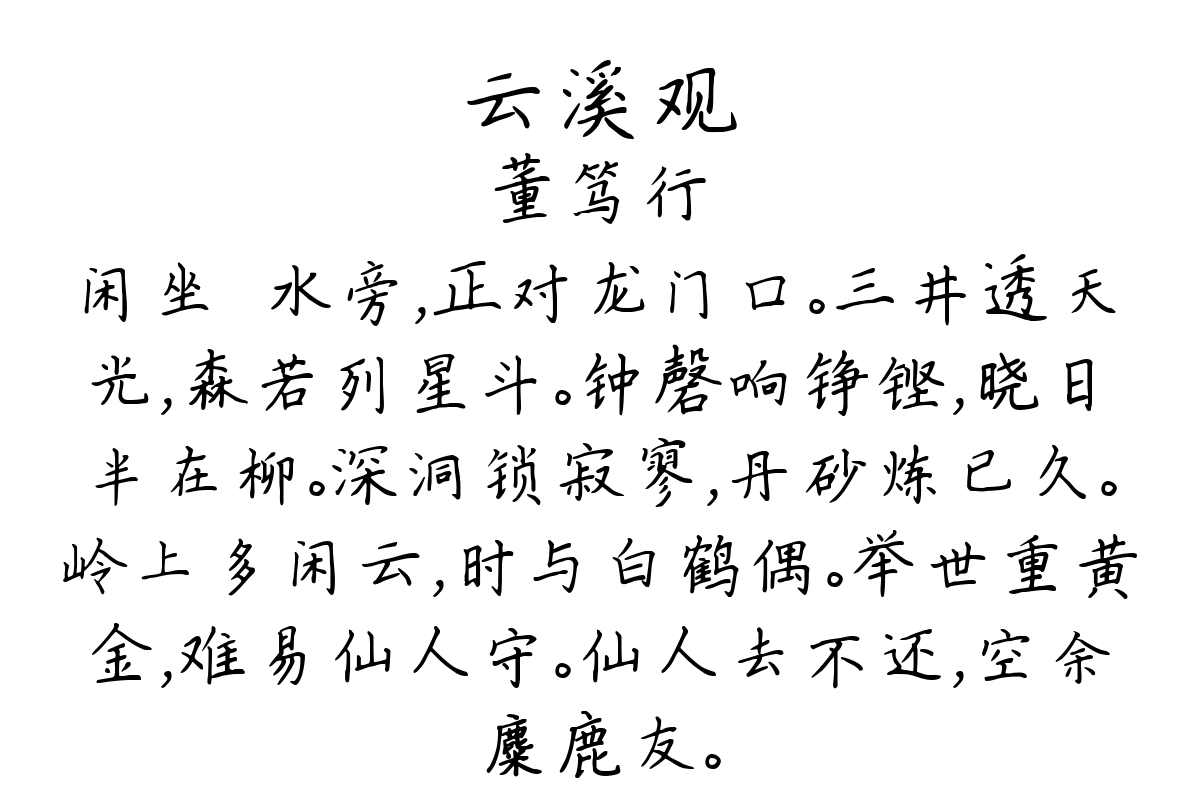 云溪观
董笃行
闲坐 水旁,正对龙门口。三井透天
光,森若列星斗。钟磬响铮铿,晓日
半在柳。深洞锁寂寥,丹砂炼已久。
岭上多闲云,时与白鹤偶。举世重黄
金,难易仙人守。仙人去不还,空余
麋鹿友。